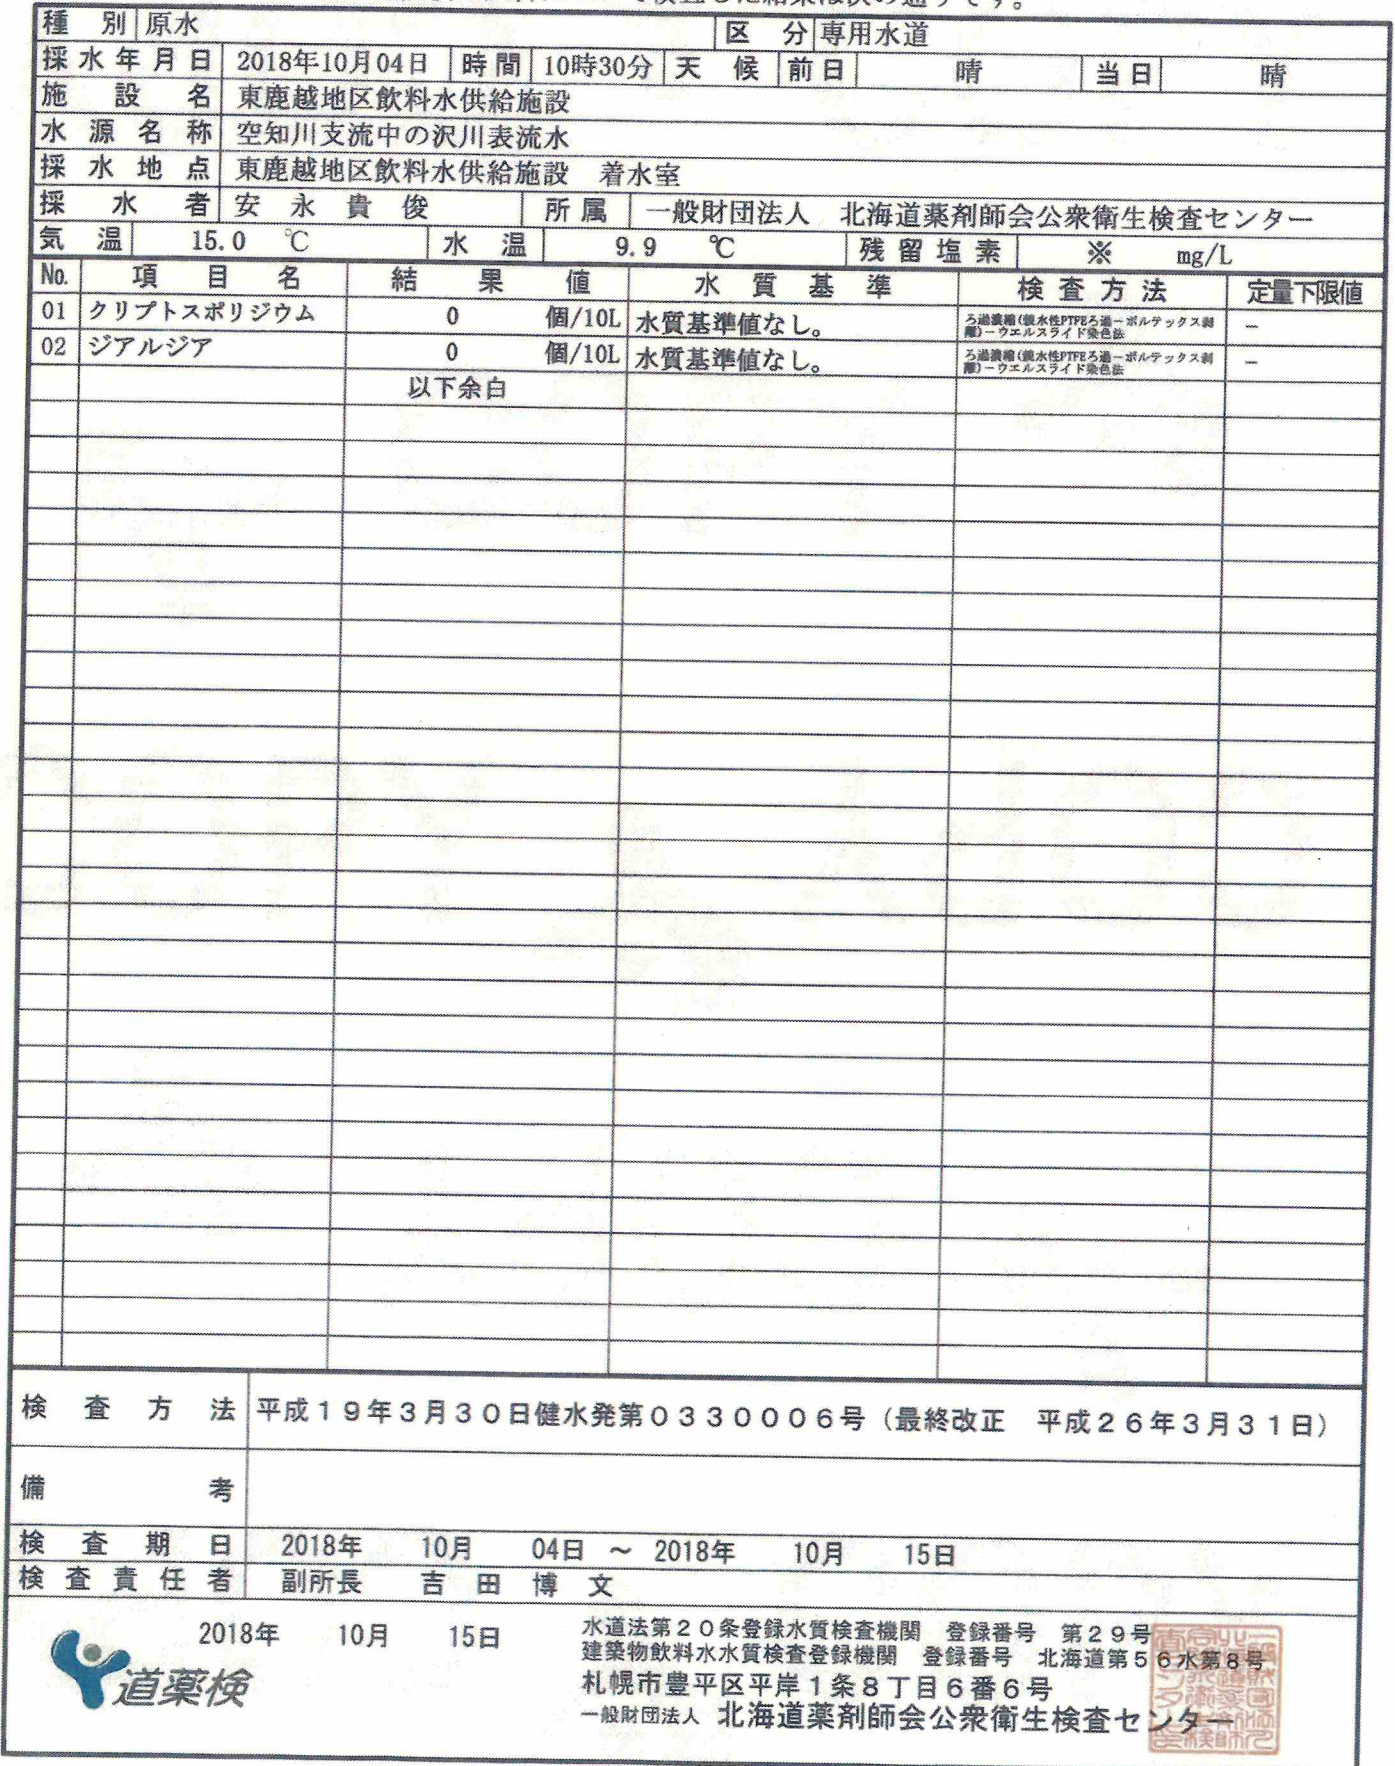 て検査した結果は次の通りです。
種別 原水 区分 専用水道
採水年月日 2018年10月04日 時間 10時30分 天候 前日 晴 当日 晴
施設名 東鹿越地区飲料水供給施設
水源名称 空知川支流中の沢川表流水
採水地点 東鹿越地区飲料水供給施設 着水室
採水者 安永貴俊 所属 一般財団法人 北海道薬剤師会公衆衛生検査センター
気温 15.0 ℃ 水温 9.9 ℃ 残留塩素 ※ mg/L
No. 項目名 結果値 水質基準 検査方法 定量下限値
01 クリプトスポリジウム 0 個/10L 水質基準値なし。 ろ過濃縮(親水性PTFEろ過－ボルテックス剥離)－ウエルスライド染色法 －
02 ジアルジア 0 個/10L 水質基準値なし。 ろ過濃縮(親水性PTFEろ過－ボルテックス剥離)－ウエルスライド染色法 －
以下余白
検査方法 平成１９年３月３０日健水発第０３３０００６号（最終改正 平成２６年３月３１日）
備考
検査期日 2018年 10月 04日 ～ 2018年 10月 15日
検査責任者 副所長 吉田博文
2018年 10月 15日
道薬検
水道法第２０条登録水質検査機関 登録番号 第２９号
建築物飲料水水質検査登録機関 登録番号 北海道第５６水第８号
札幌市豊平区平岸１条８丁目６番６号
一般財団法人 北海道薬剤師会公衆衛生検査センター